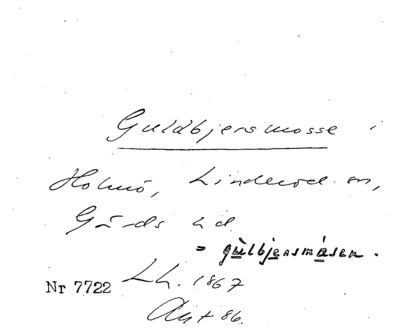 Guldbjersmosse i
Holmö, Linderöd sn,
Gärds hd.
= gùlbjersmåsen.
Nr 7722 Lh. 1867
Akt 86.